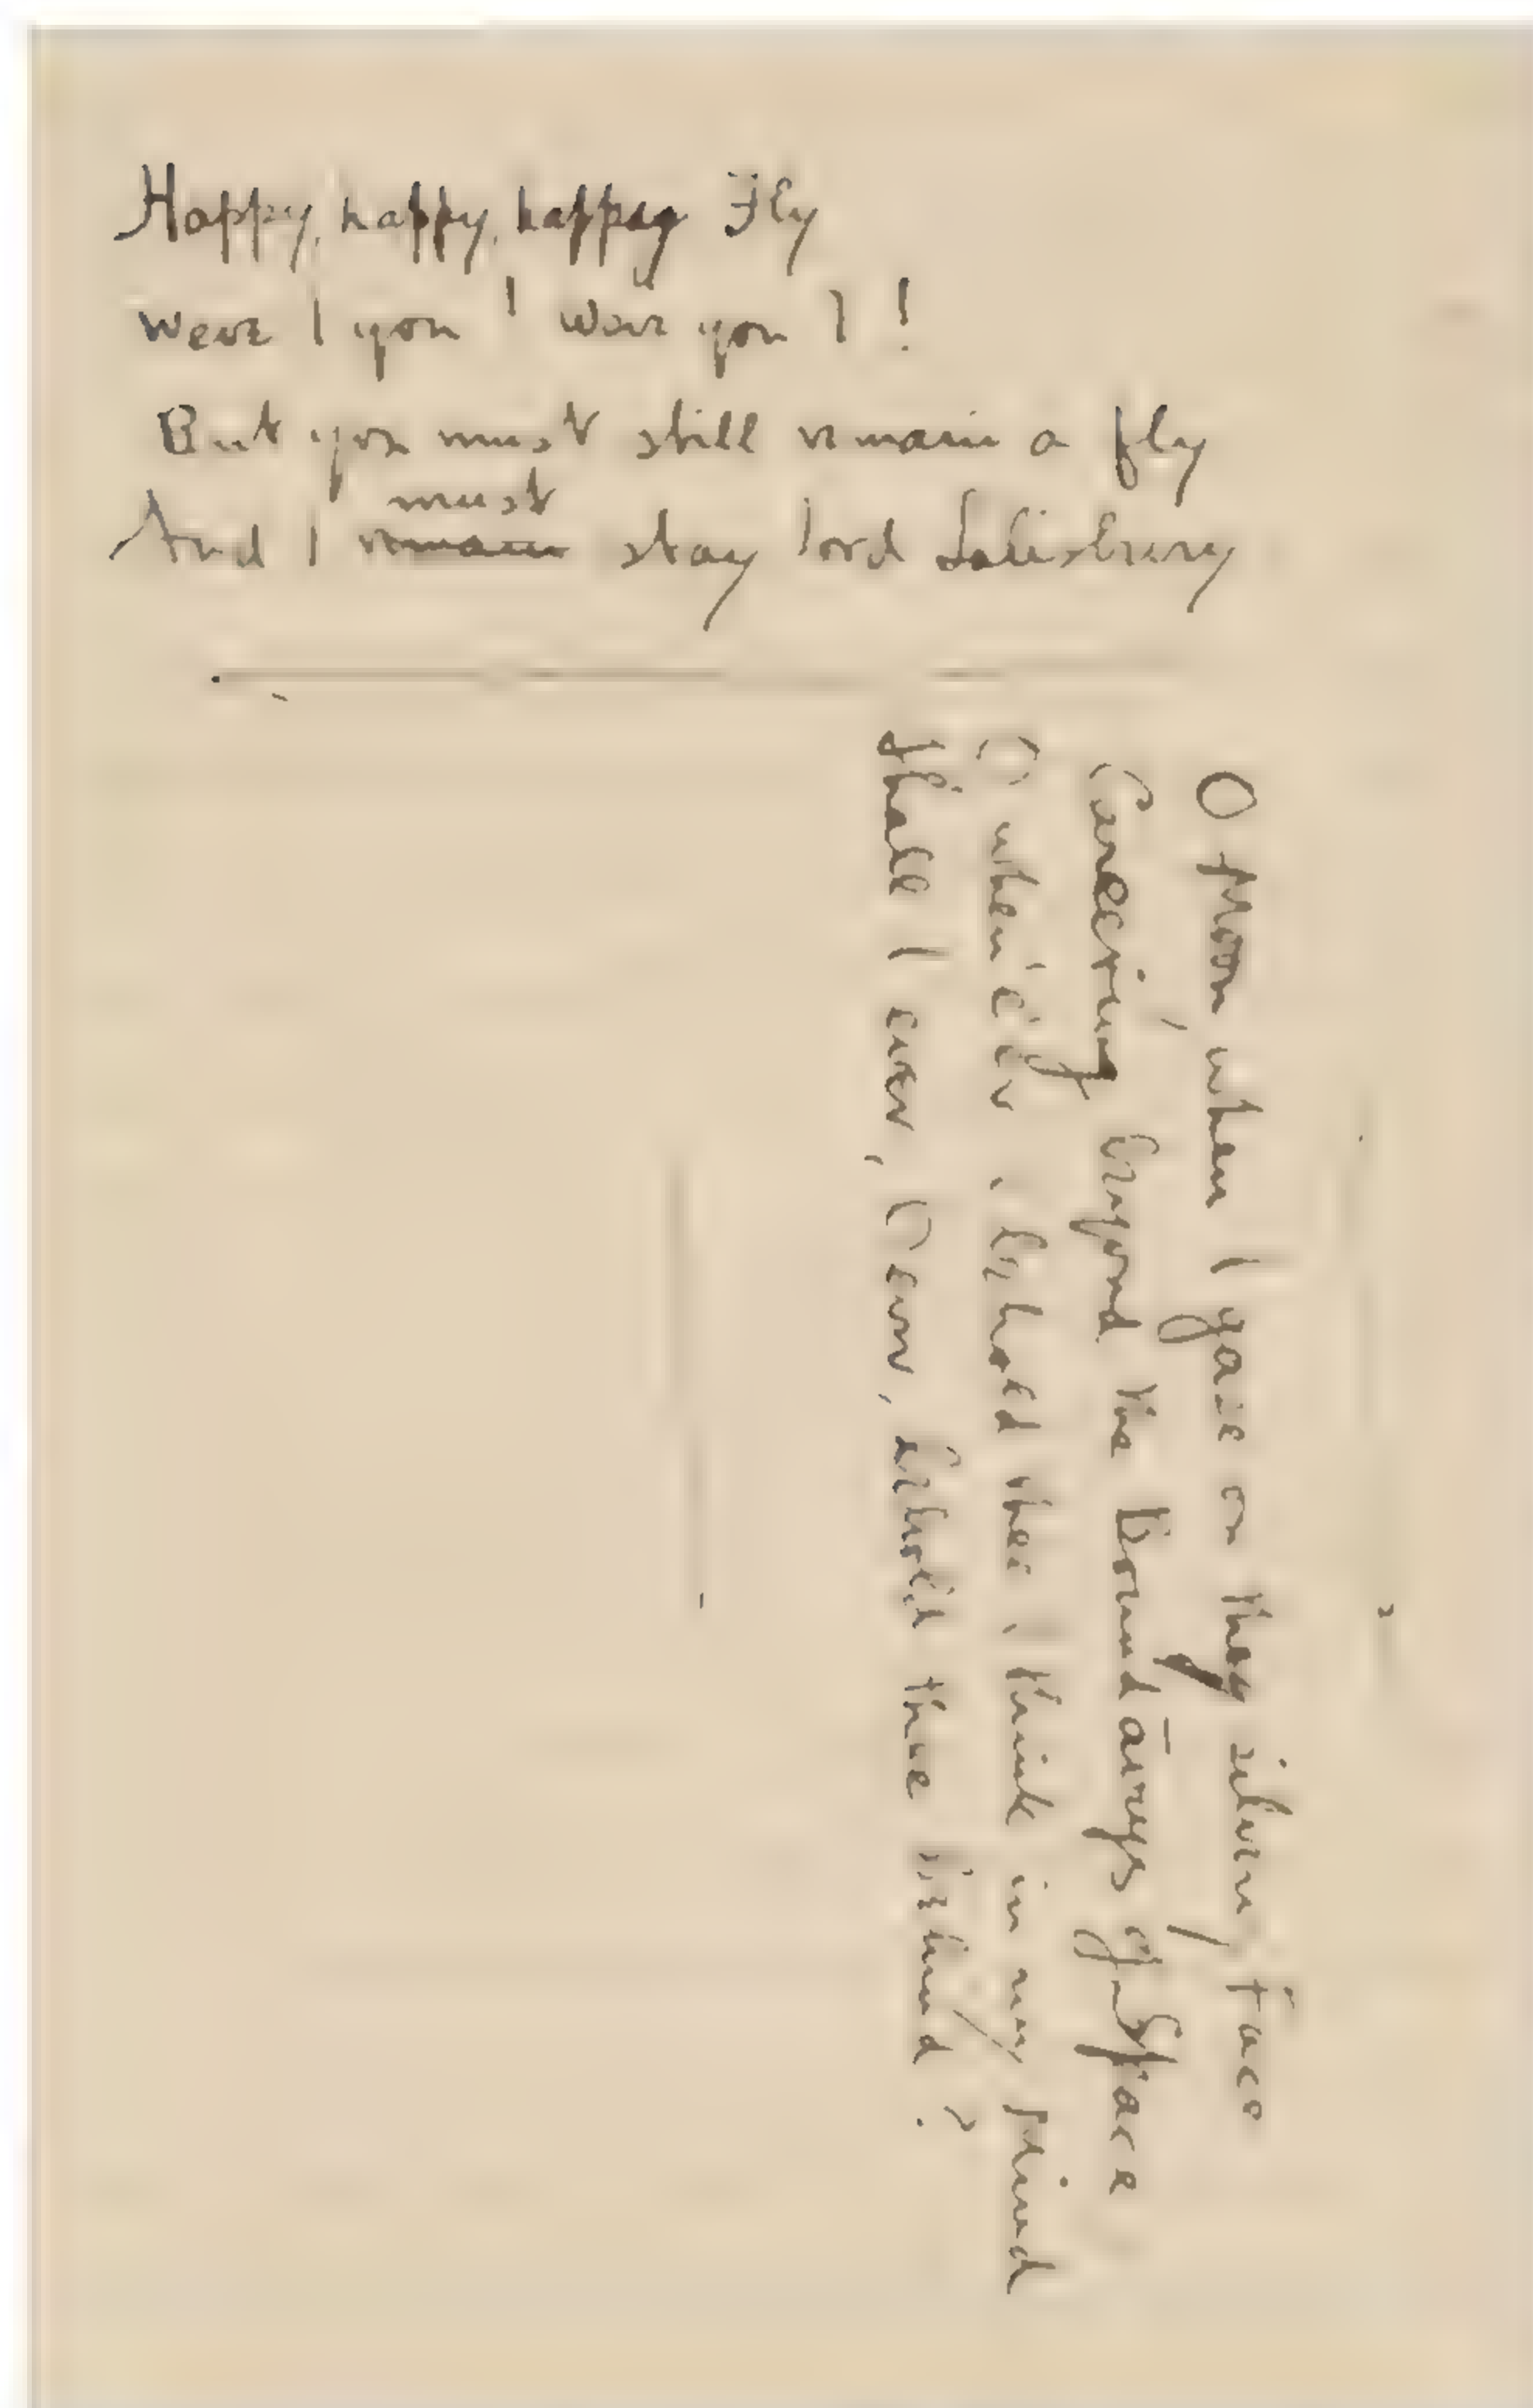 Happy, happy, happy Fly
Were I you ' were you I !
But you must still remain a fly
must
And I remain stay lord Salisbury
O Moon, when I gaze on thy silvery Face
Careering beyond the Boundārys of Space
O when e'er I behold thee I think in my Mind
Shall I ever, O ever, behold thee behind ?